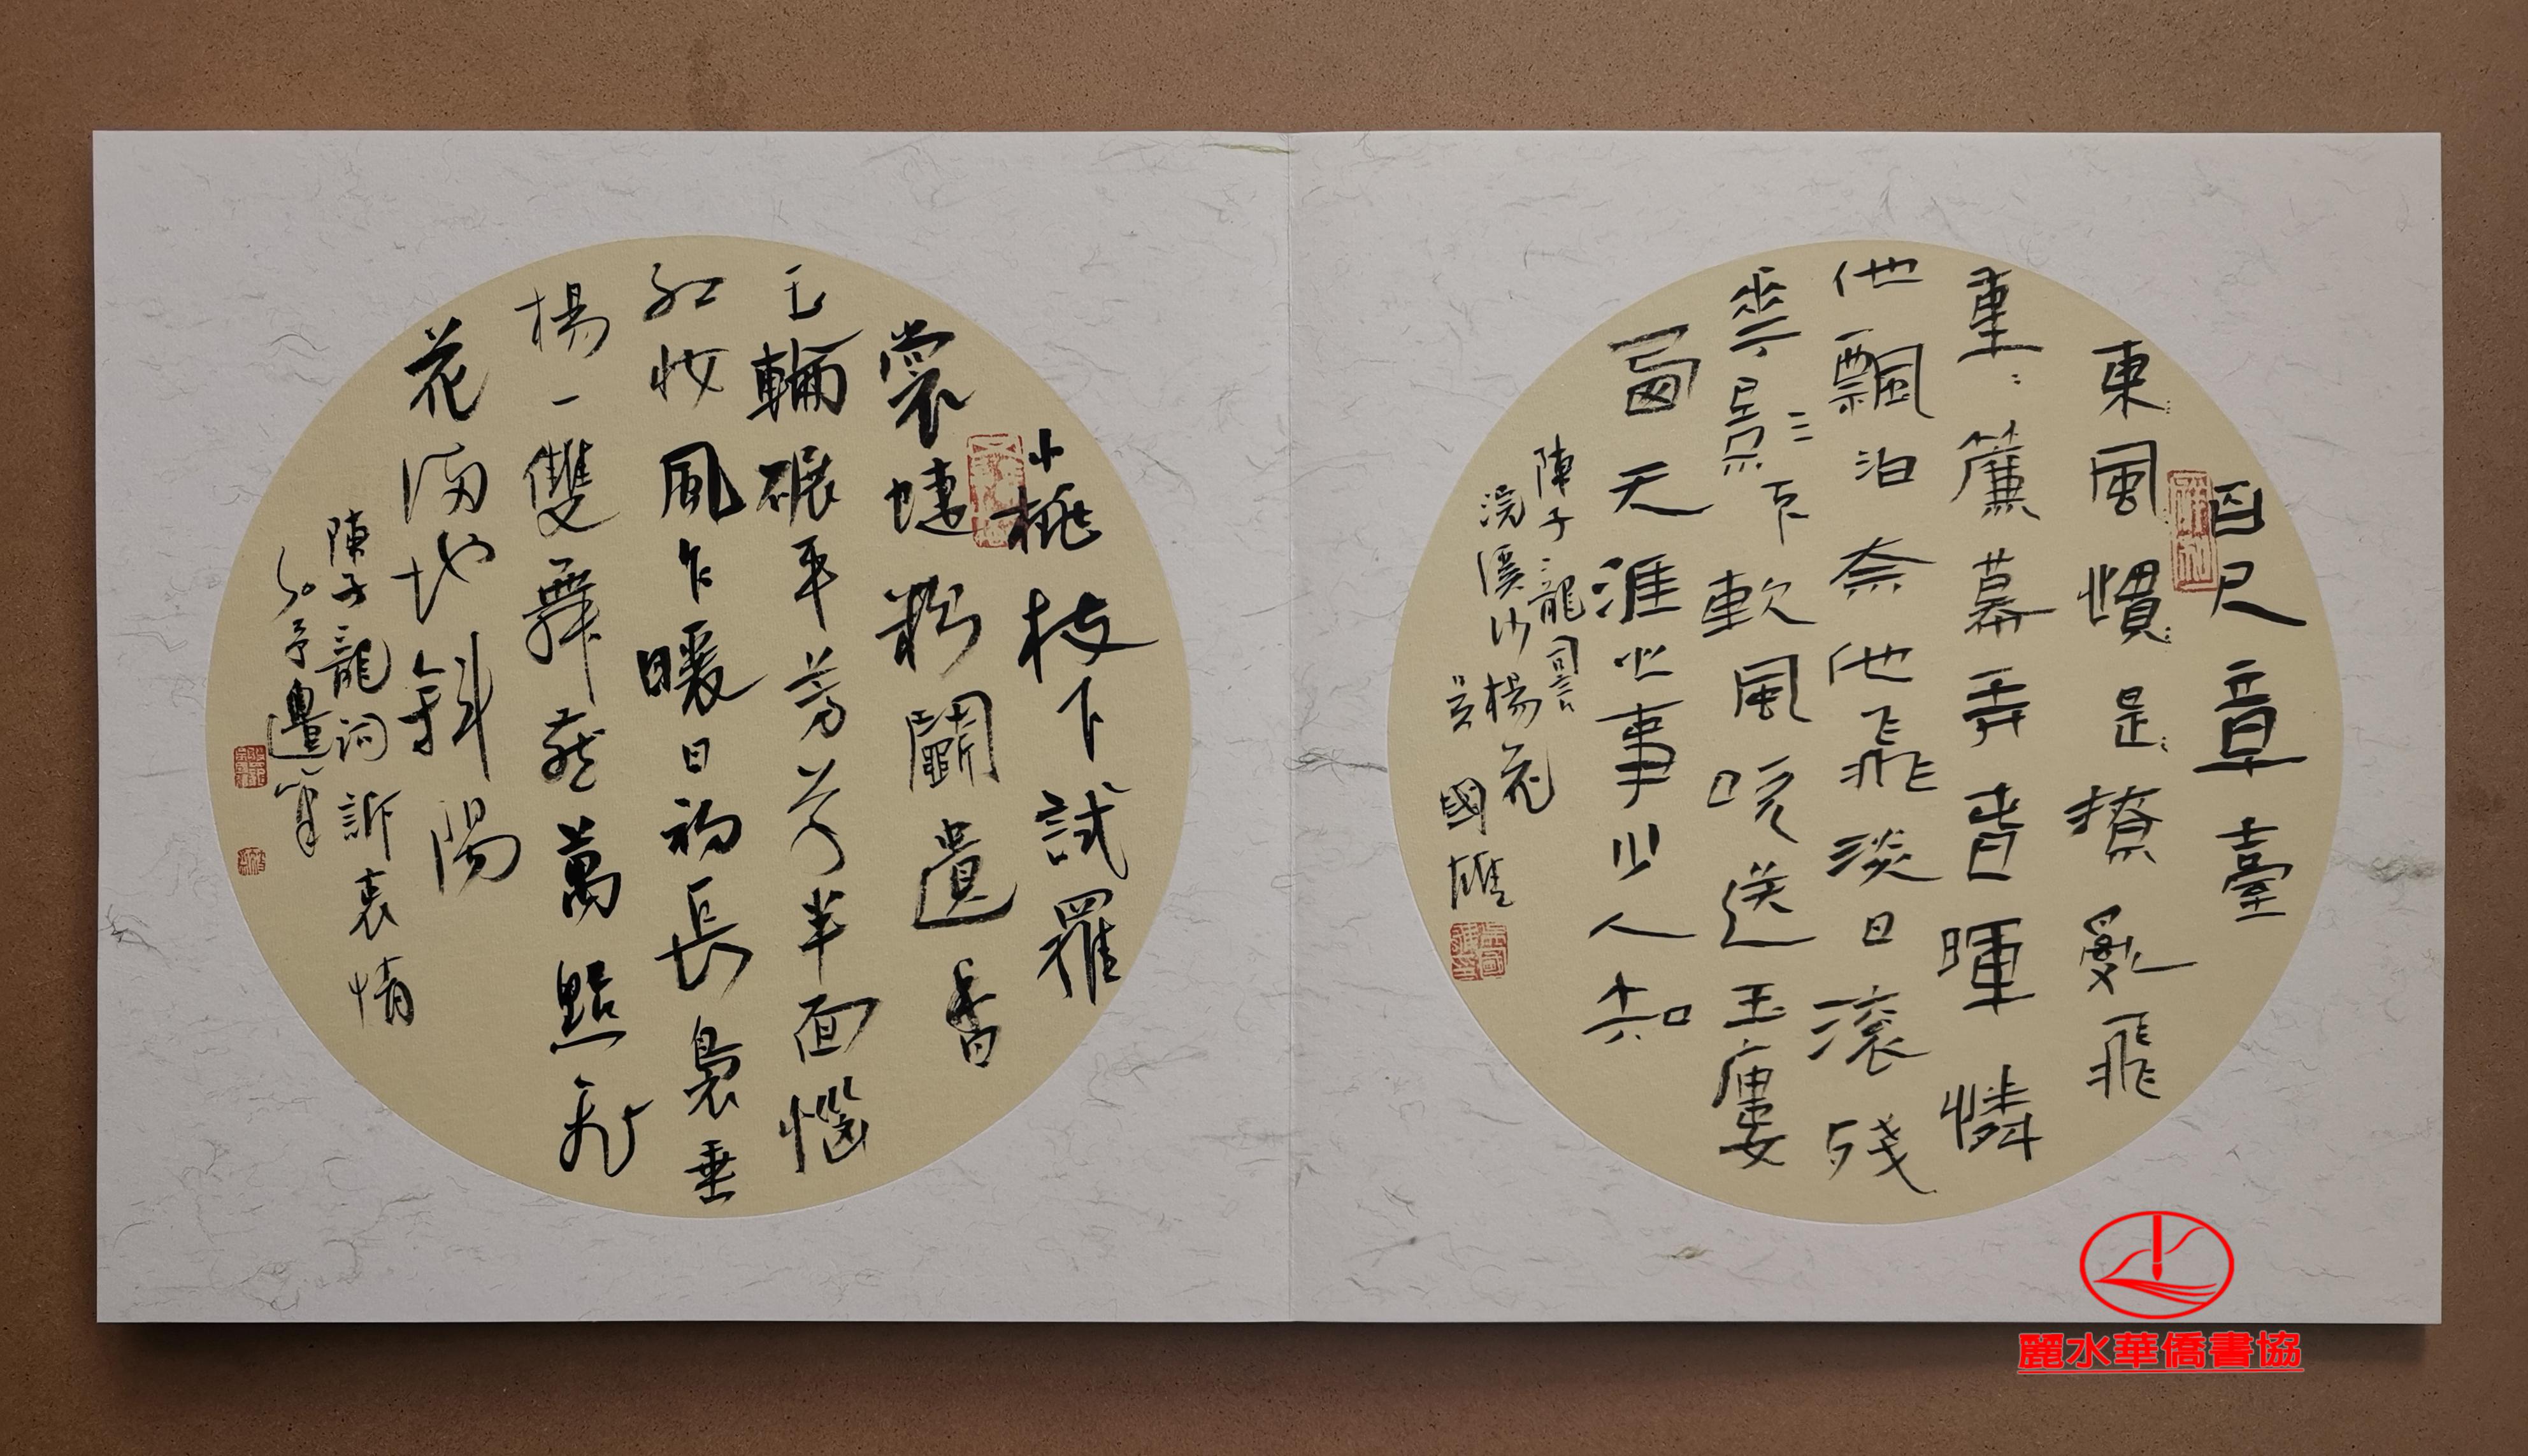 百尺章臺
東風慣是撩亂飛
重:簾幕弄春暉憐
他飄泊奈他飛淡日滾殘
華影下軟風吹送玉廔
西天涯心事少人知
陳子龍詞
浣溪沙楊花
吳國雄
小桃枝下試羅
裳蝶粉鬭遺香
玉輪碾平芳草半面惱
紅妝風乍暖日初長裊垂
楊一雙舞燕萬點飛
花滿地斜陽
陳子龍詞訴衷情
麗水華僑書協